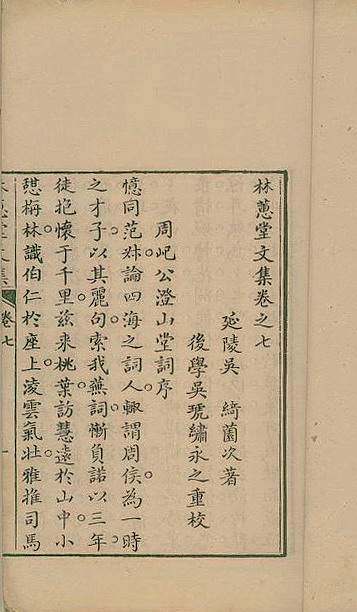 林蕙堂文集卷之七
延陵吳 綺薗次著
後學吳琥繡永之重校
周屺公澄山堂詞序
憶同范姊論四海之詞人輒謂周侯為一時
之才子以其麗句索我蕪詞慚負諾以三年
徒抱懷于千里兹來桃葉訪慧遠於山中小
憇梅林識伯仁於座上凌雲氣壯雅推司馬
林蕙堂文集 卷七 一